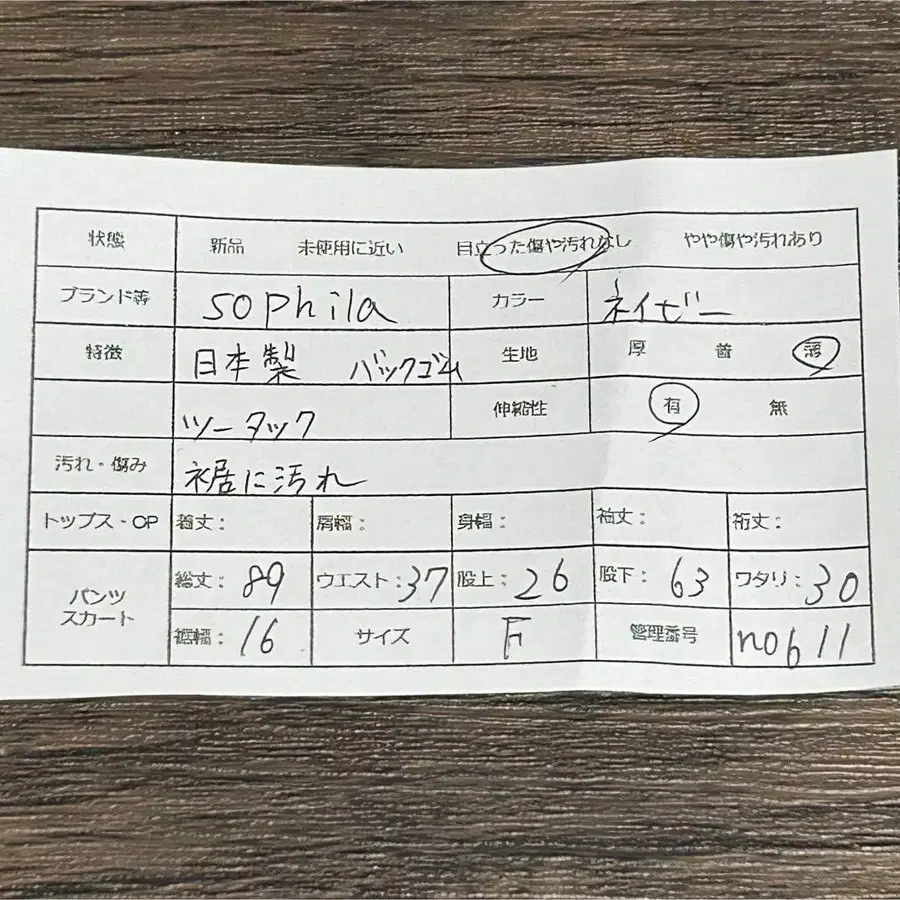 状態 新品 未使用に近い 目立った傷や汚れなし やや傷や汚れあり
ブランド等 sophila カラー ネイビー
特徴 日本製 バックゴム 生地 厚 普 薄
ツータック 伸縮性 有 無
汚れ・傷み 裾に汚れ
トップス・OP 着丈: 肩幅: 身幅: 袖丈: 裄丈:
パンツ スカート 総丈: 89 ウエスト: 37 股上: 26 股下: 63 ワタリ: 30
裾幅: 16 サイズ F 管理番号 no611